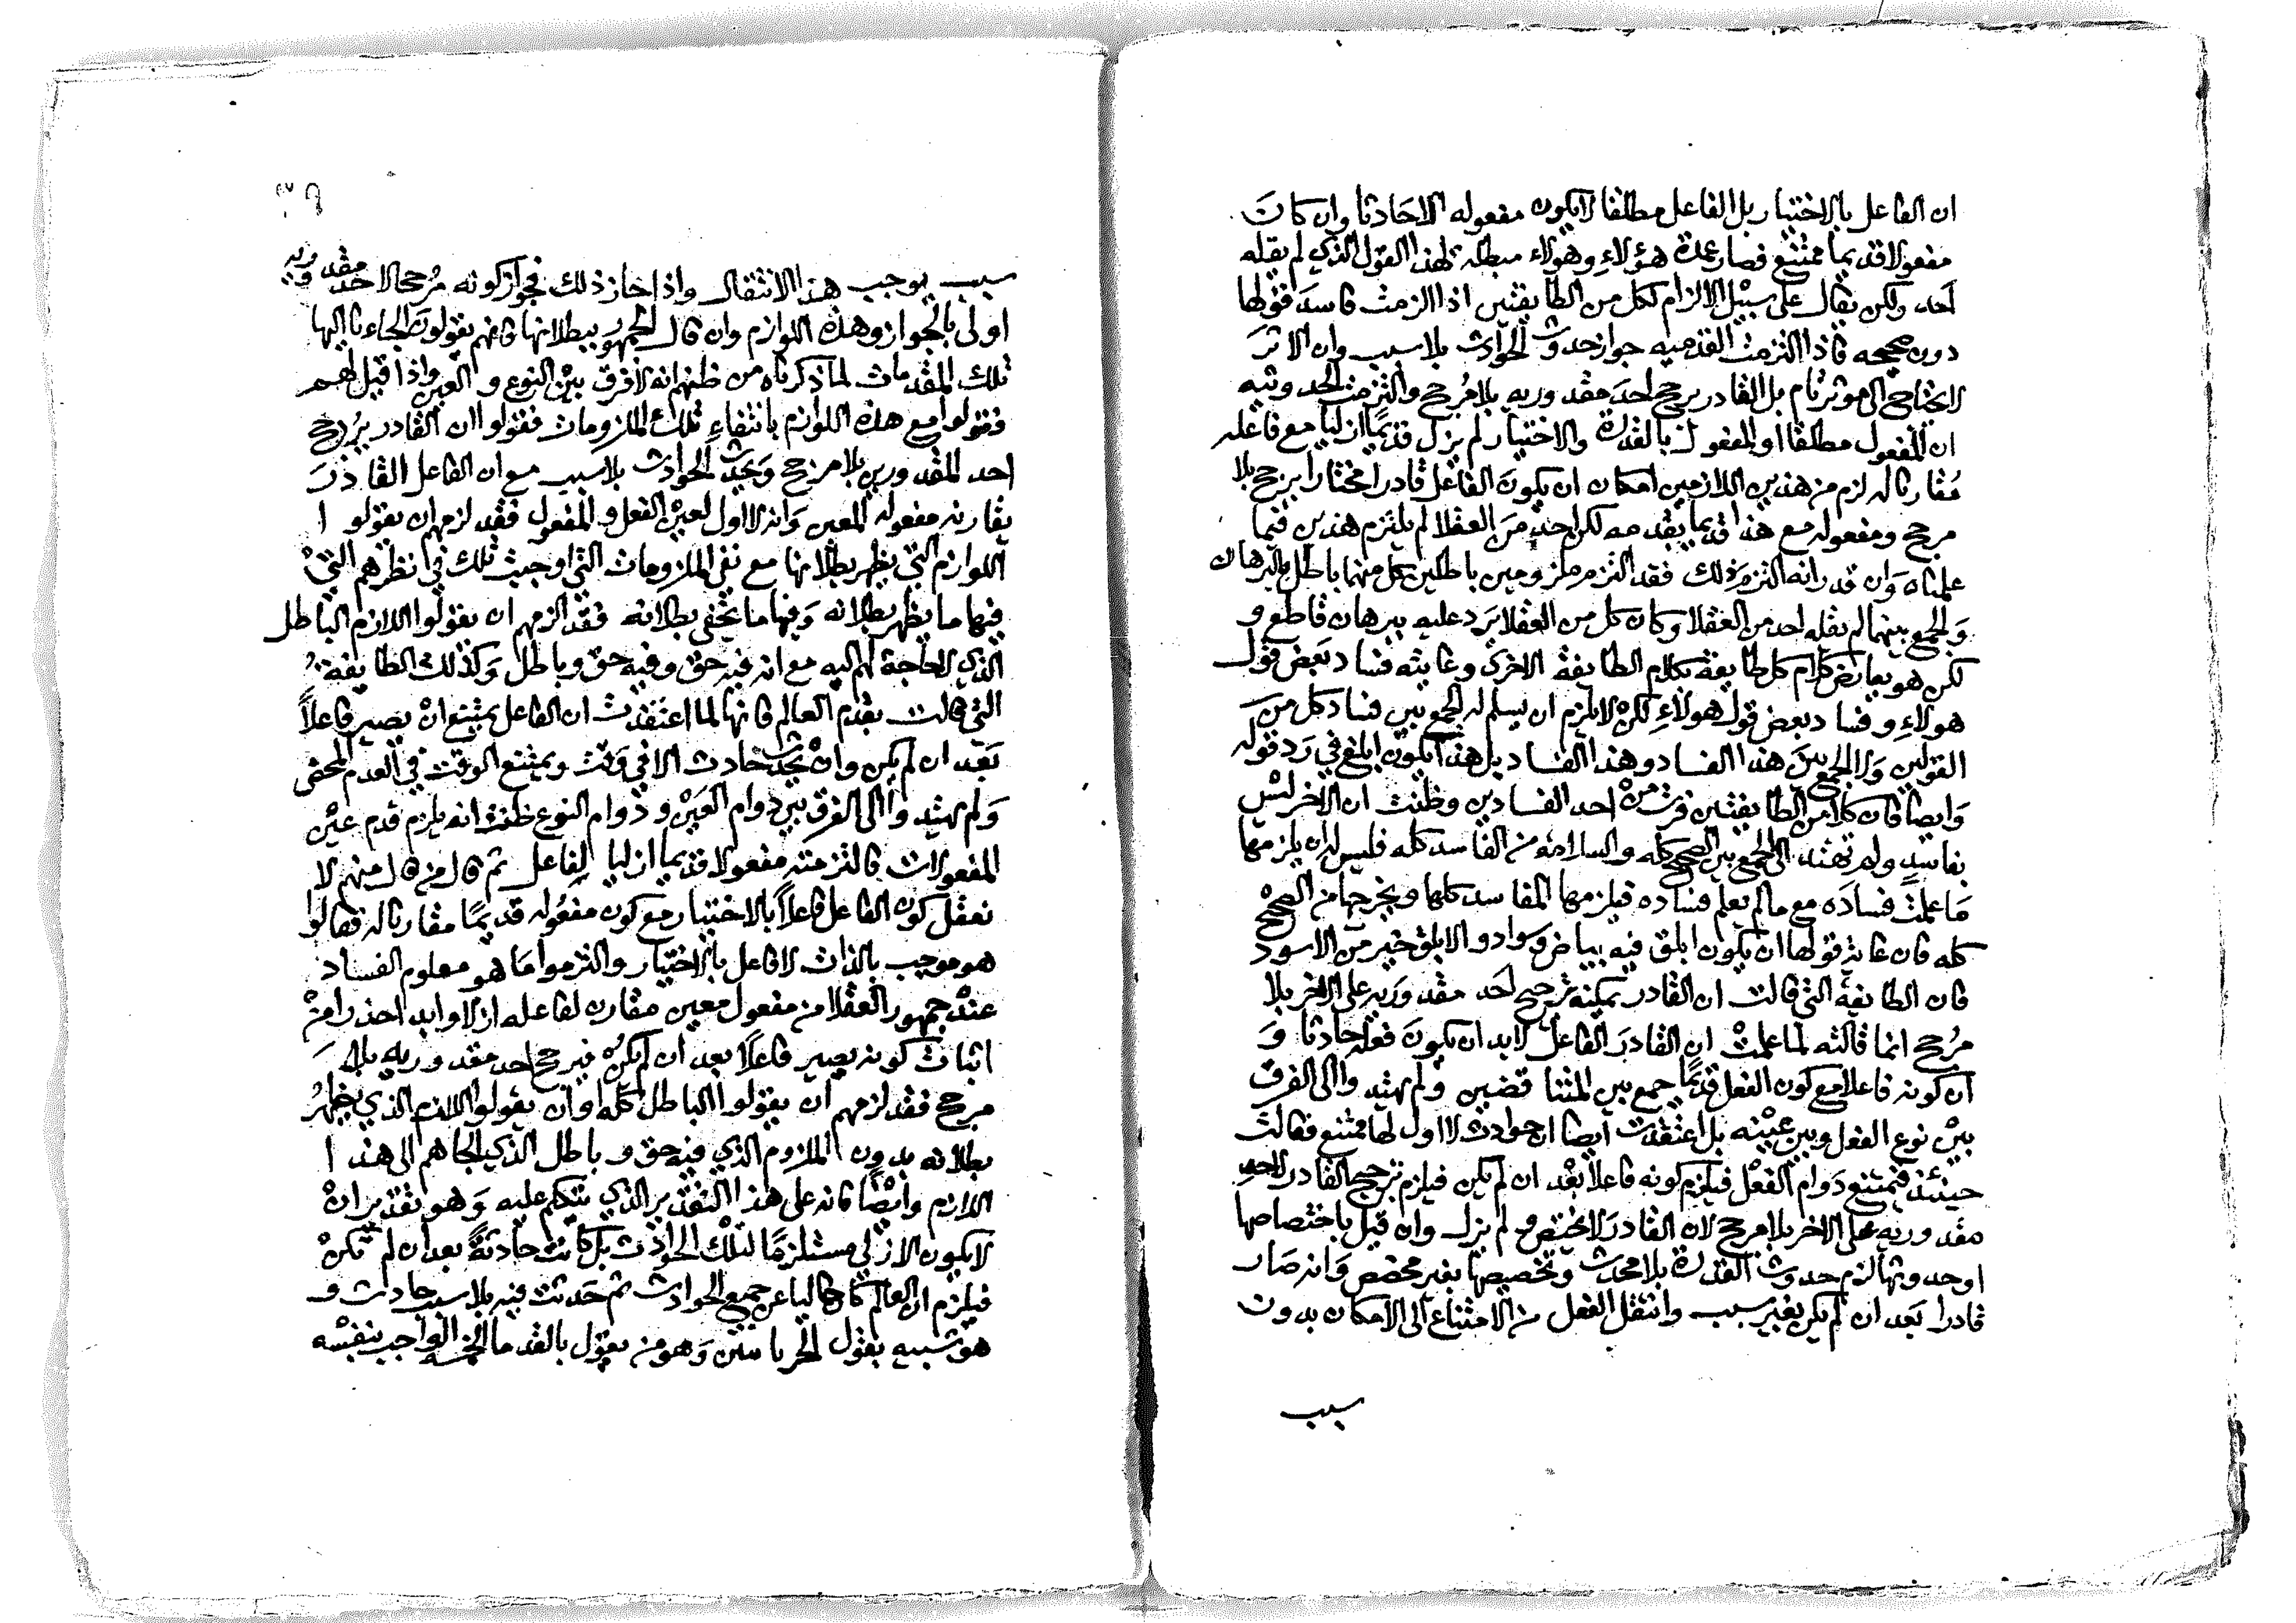 ان الفاعل بالاختيار بل الفاعل مطلقا لايكون مفعوله الاحادثا وان كانَ
مفعولا قديما ممتنع فصار عمدة هؤلاءِ وهولاء مبطله لهذا القول الذي لم يقله
اَحد ولكن يقال على سبيْل الالزام لكل من الطايفتين اذا التزمت فاسدَ قولها
دون صحيحه فاذا التزمت القدميه جواز حدوث الحوادث بلا سبب وان الاثرَ
لايحتاج الى موثر تام بل القادر يرجح احدَ مقدوريه بلا مُرجح والتزمت الحدوثيه
ان المفعول مطلقا او المفعول بالقدرة والاختيار لم يزل قديمًا ازليا مع فاعله
مُقارنا له لزم من هذين اللازمين امكان ان يكونَ الفاعل قادرا مختارا يرجح بلا
مرجح ومفعوله مع هذا قديما بقدمه لكن احد مَن العقلا لم يلتزم هذين فيما
علمناه وَان قدر انه التزم ذلك فقد التزم ملزومين باطلين كل منهما باطل بالبرهان
وَالجمع بينهما لم يقله احد من العقلا وكان كل من العقلا يَرد عليه ببرهان قاطع و
لكن هو يعارض كلام كل طايفة بكلام الطايفة الاخرى وغايته فساد بَعض قول
هولاءِ وفساد بعض قول هولاءِ لكنْ لايلزم ان يسلم له الجمع بين فساد كل من
القولين وَلا الجمع بينَ هذا الفساد وهذا الفساد بل هذا يكون ابلغ في رَد قوله
وَايضا فان كلا من الطايفتين فرت منْ احد الفسادين وظنت ان الاخر ليْس
بفاسدٍ ولم تهتد الى الجمع بين الصحيح كله والسلامة من الفاسد كله فليس له ان يلزمها
مَا علمت فسادَه مع مالم يعلم فساده فيلزمها المفاسد كلها ويخرجها من الصحيْح
كله فان غاية قولها ان يكون ابلق فيه بياض وسواد والابلق خير من الاسود
فان الطايفة التي قالت ان القادر يمكنه ترجيح اَحد مقدوريه على الاخر بلا
مرُجح انما قالته لما علمتْ ان القادرَ الفاعل لابد ان يكونَ فعله حادثا وَ
ان كونه فاعلا مع كون الفعل قديمًا جمع بين المتناقضين ولم يهتدوا الى الفرق
بيْن نوع الفعل وبين عيْنه بل اعتقدت ايضا ان حوادث لا اول لها ممتنع فقالت
حينئذ فيمتنع دَوام الفعْل فيلزم كونه فاعلا بعْد ان لم يكن فيلزم ترجيح القادر لاحدِ
مقدوريه على الاخر بلا مرجح لان القادرَ لايختص و لم يزل وان قيل باختصاصها
او حدوثها لزم حدوث القدرة بلا محدث وتخصيصها بغير مخصص وَانه صار
قادرا بَعد ان لم يكن بغير سبب وانتقل الفعل من الامتناع الى الامكان بدون
سبب
سبب يوجب هذا الانتقال واذا جاز ذلك فجواز كونه مُرجحا لاحد مقدوريه
اولى بالجواز وهذه اللوازم وان قال الجمهور ببطلانها فانهم يقولون الجاءنا اليها
تلك المقدمات لما ذكرناه من ظنهم انه لافرق بيْن النوع و العين واذا قيل لهم
فقولوا مع هذه اللوازم بانتفاءِ تلك الملزومات فقولوا ان القادر يرُجح
احد المقدورين بلا مرجح وَتحدث الحوادث بلا سبب مع ان الفاعل القادرَ
يقارنه مفعوله المعين وَانه لا اول لعيْن الفعل و المفعول فقد لزمهم ان يقولوا
اللوازم التي يظهر بطلانها مع نفي الملزومات التي اوجبت تلك في نظرهم التيْ
فيها ما يظهر بطلانه وَفيها ما يخفى بطلانه فقد الزمهم ان يقولوا اللازم الباطل
الذي لاحاجة لهم اليه مع انه فيه حق وفيه حق وباطل وَكذلك الطايفةُ
التي قالت بقدم العالم فانها لما اعتقدت ان الفاعل يمتنع انْ يصير فاعلاً
بَعْد ان لم يكن وانْ يحدث حادث الا في وَقت ويمتنع الوقت في العدم المحض
وَلم يهتدوا الى الفرق بين دوام العَيْن ودوام النوع ظنت انه يلزم قدم عيْن
المفعولات فالتزمته مفعولا قديما ازليا لِفاعل ثم قال من قال منهم لا
نعقل كون الفاعل فاعلاً بالاختيار مع كون مفعُوله قديمًا مقارنا له فقالوا
هو موجب بالذات لافاعل بالاختيار والتزموا مَا هو معلوم الفساد
عنْد جمهور العقلا من مفعول معين مقارن لفاعله ازلا وابدا حذرا منْ
اثبات كونه يصير فاعلاً بعد ان لم يكنْ فيرجح احد مقدوريه بلا
مرجح فقد لزمهم ان يقولوا الباطل كله او ان يقولوا اللازم الذي يظهرُ
بطلانه بدون الملزوم الذي فيه حق و باطل الذي الجاهم الى هذا
اللازم وايْضًا فانه على هذا التقدير الذي نتكلم عليه وَهو تقدير انْ
لايكون الازلي مستلزمًا لتلْك الحوادث بل كانت حادثةً بعد ان لم تكنْ
فيلزم ان العالم كان خاليا عن جميع الحوادث ثم حَدثت فيه بلا سبب حادث و
هو شبيه بقول الحرنانيين وَهو من يقول بالقدما الخمسه الواجب بنفسْه